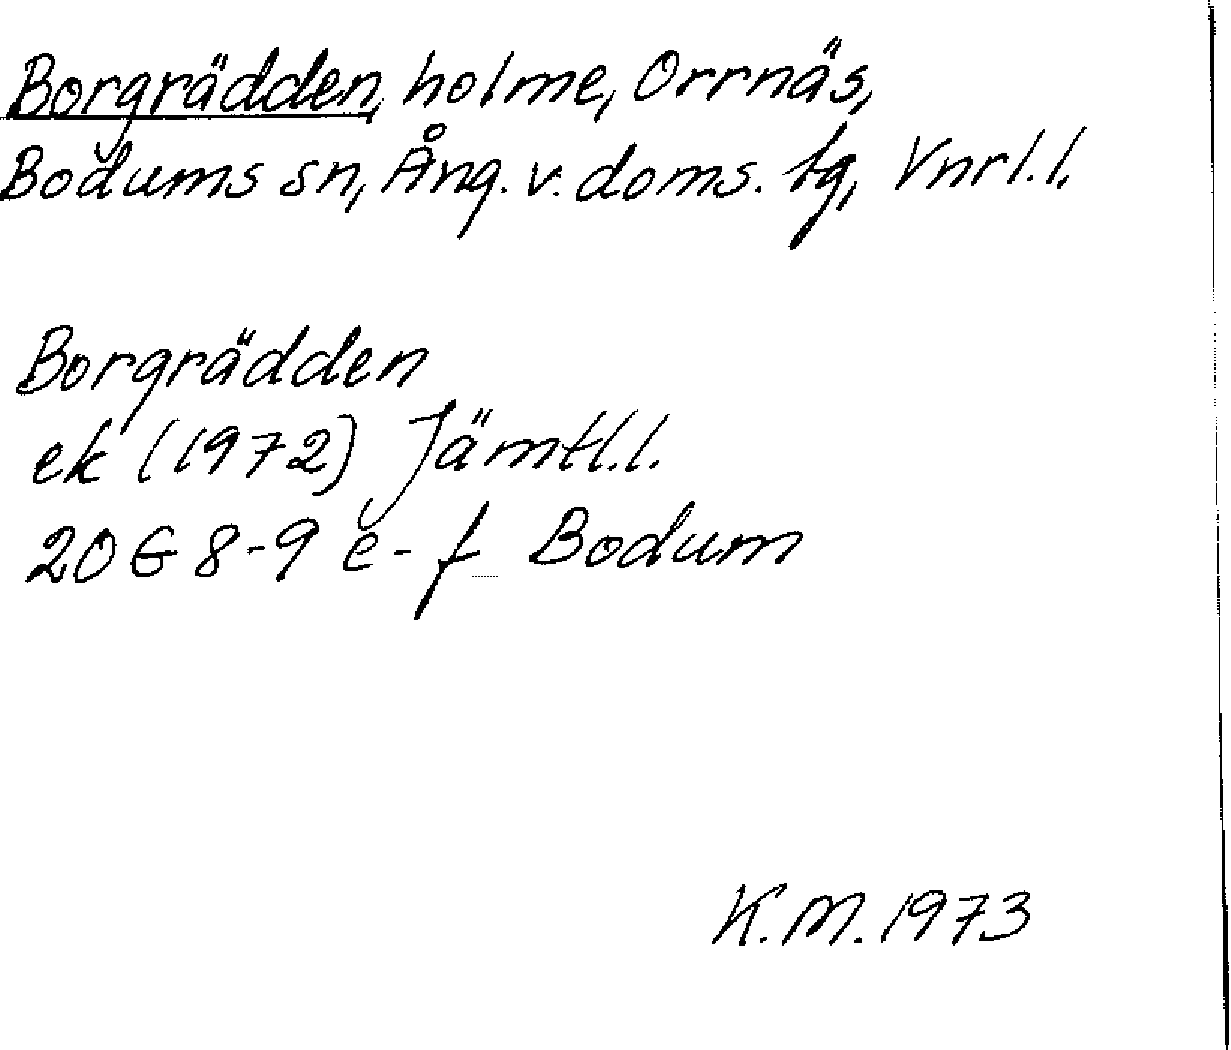 Borgrädden, holme, Orrnäs,
Bodums sn, Ång. v. doms. tg, Vnrl. l.
Borgrädden
ek (1972) Jämtl. l.
20 G 8-9 e-f Bodum
K.M. 1973